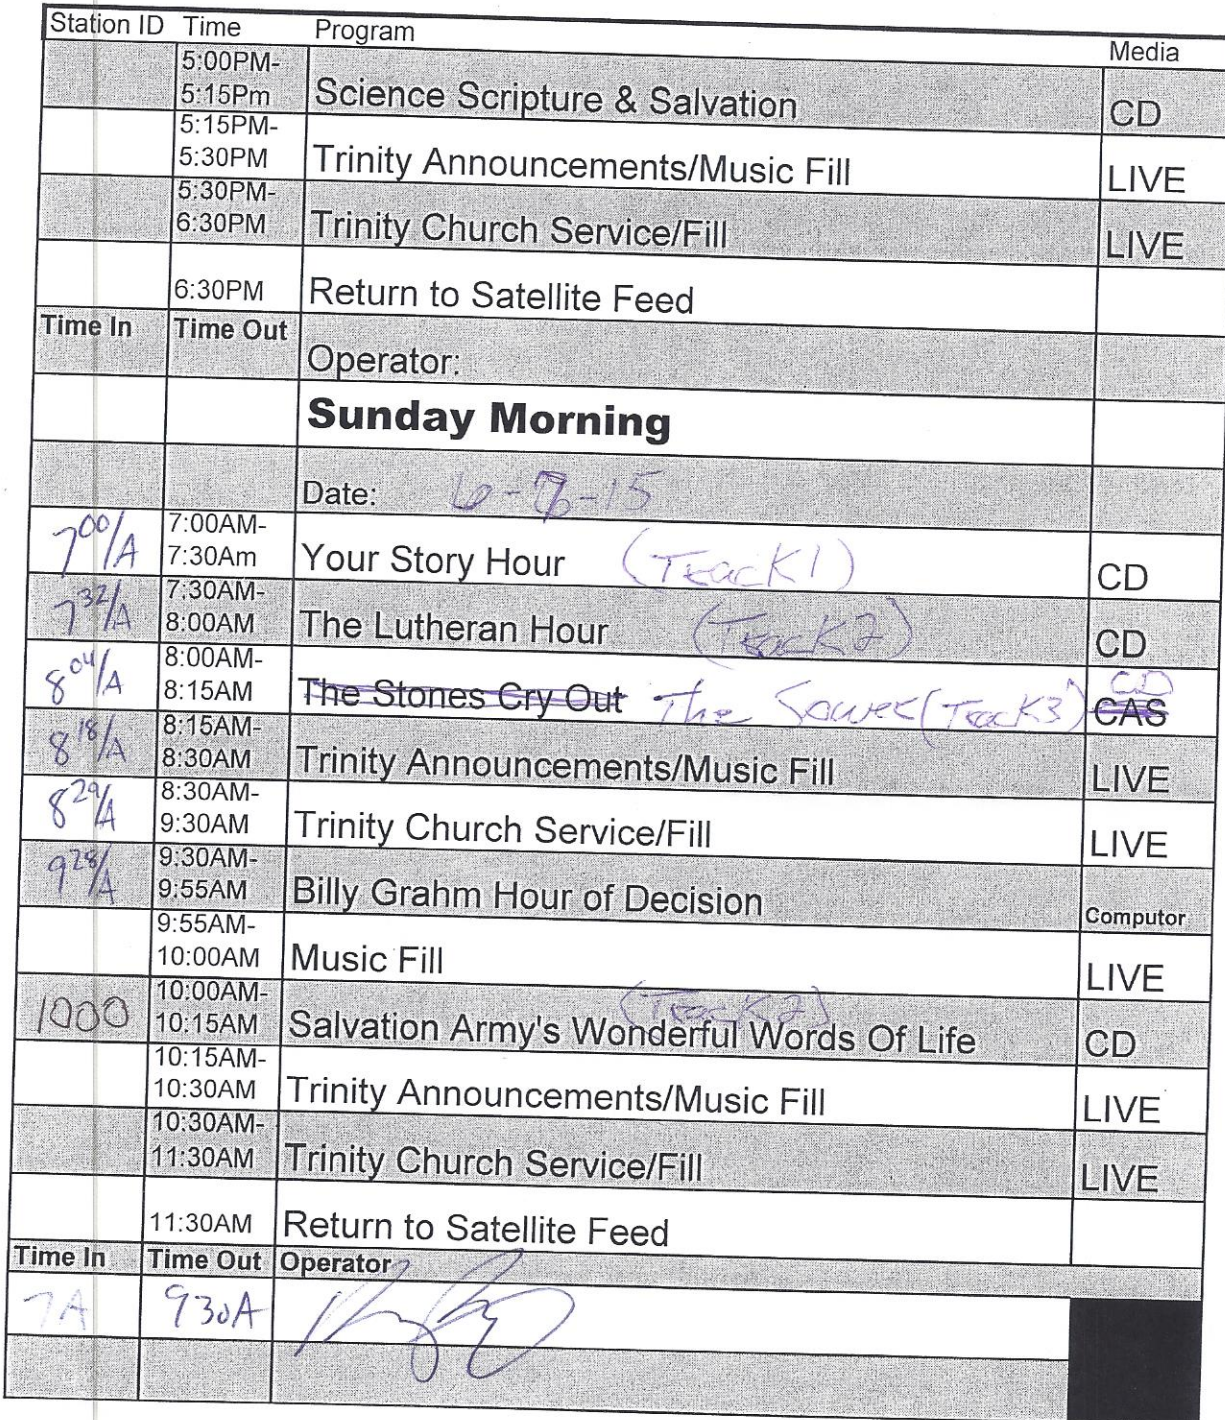 Station ID Time Program Media
5:00PM-
5:15Pm Science Scripture & Salvation CD
5:15PM-
5:30PM Trinity Announcements/Music Fill LIVE
5:30PM-
6:30PM Trinity Church Service/Fill LIVE
6:30PM Return to Satellite Feed
Time In Time Out Operator:
Sunday Morning
Date: 6-7-15
7:00/A 7:00AM-
7:30Am Your Story Hour (Track 1) CD
7:32/A 7:30AM-
8:00AM The Lutheran Hour (Track 2) CD
8:04/A 8:00AM-
8:15AM The Stones Cry Out The Sower (Track 3) CD CAS
8:18/A 8:15AM-
8:30AM Trinity Announcements/Music Fill LIVE
8:29/A 8:30AM-
9:30AM Trinity Church Service/Fill LIVE
9:28/A 9:30AM-
9:55AM Billy Grahm Hour of Decision Computor
9:55AM-
10:00AM Music Fill LIVE
1000 10:00AM- (Track 2)
10:15AM Salvation Army's Wonderful Words Of Life CD
10:15AM-
10:30AM Trinity Announcements/Music Fill LIVE
10:30AM-
11:30AM Trinity Church Service/Fill LIVE
11:30AM Return to Satellite Feed
Time In Time Out Operator
7A 930A